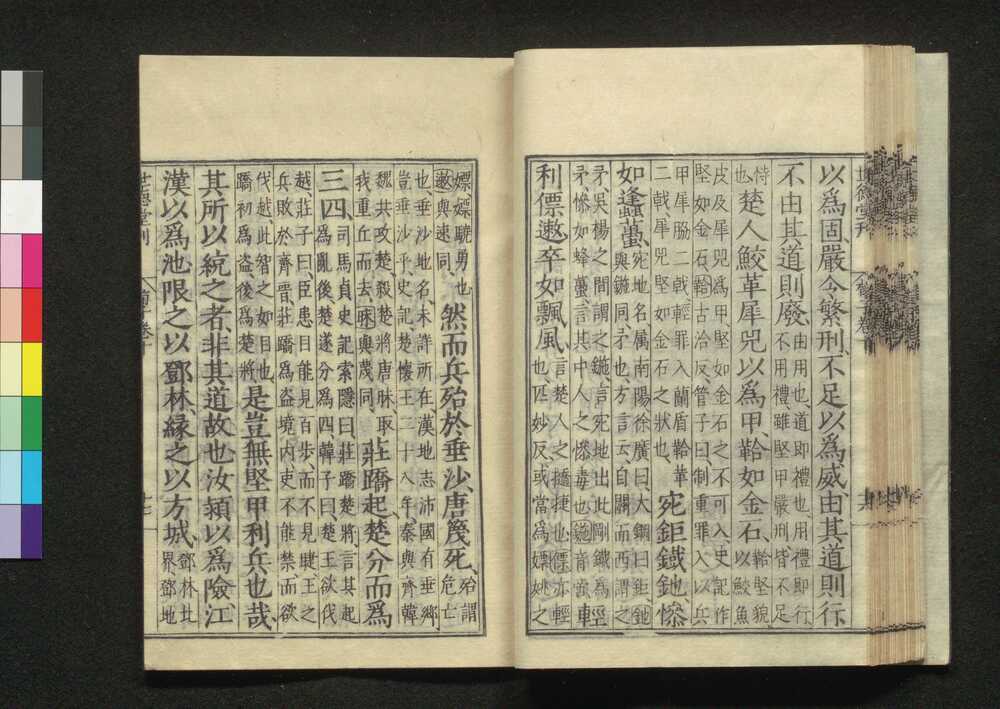 以為固嚴令繁刑不足以為威由其道則行
不由其道則廢
由用也道即禮也用禮即行
不用禮雖堅甲嚴刑皆不足
恃
也
楚人鮫革犀兕以為甲鞈如金石
鞈堅貌
以鮫魚
皮及犀兕為甲堅如金石之不可入史記作
堅如金石鞈古洽反管子曰制重罪入以兵
甲犀脇二戟輕罪入蘭盾鞈革
二戟犀兕堅如金石之狀也
宛鉅鐵釶慘
如蠭蠆
宛地名屬南陽徐廣曰大鋼曰鉅釶
與鍦同矛也方言云自關而西謂之
矛吳楊之間謂之鍦言宛地出此剛鐵為
矛慘如蜂蠆言其中人之慘毒也鍦音啻
輕
利僄遬卒如飄風
言楚人之趫捷也僄亦輕
也匹妙反或當為嫖姚之
嫖嫖驍勇也
遬與速同
然而兵殆於垂沙唐蔑死
殆謂
危亡
也垂沙地名未詳所在漢地志沛國有垂鄉
豈垂沙乎史記楚懷王二十八年秦與齊韓
魏共攻楚殺楚將唐昧取
我重丘而去昧與蔑同
莊蹻起楚分而為
三四
司馬貞史記索隱曰莊蹻楚將言其起
為亂後楚遂分為四韓子曰楚王欲伐
越莊子曰臣患目能見百步而不見睫王之
兵敗於齊晉莊蹻為盜境內吏不能禁而欲
伐越此智之如目也
蹻初為盜後為楚將
是豈無堅甲利兵也哉
其所以統之者非其道故也汝潁以為險江
漢以為池限之以鄧林緣之以方城
鄧林北
界鄧地
世德堂刊